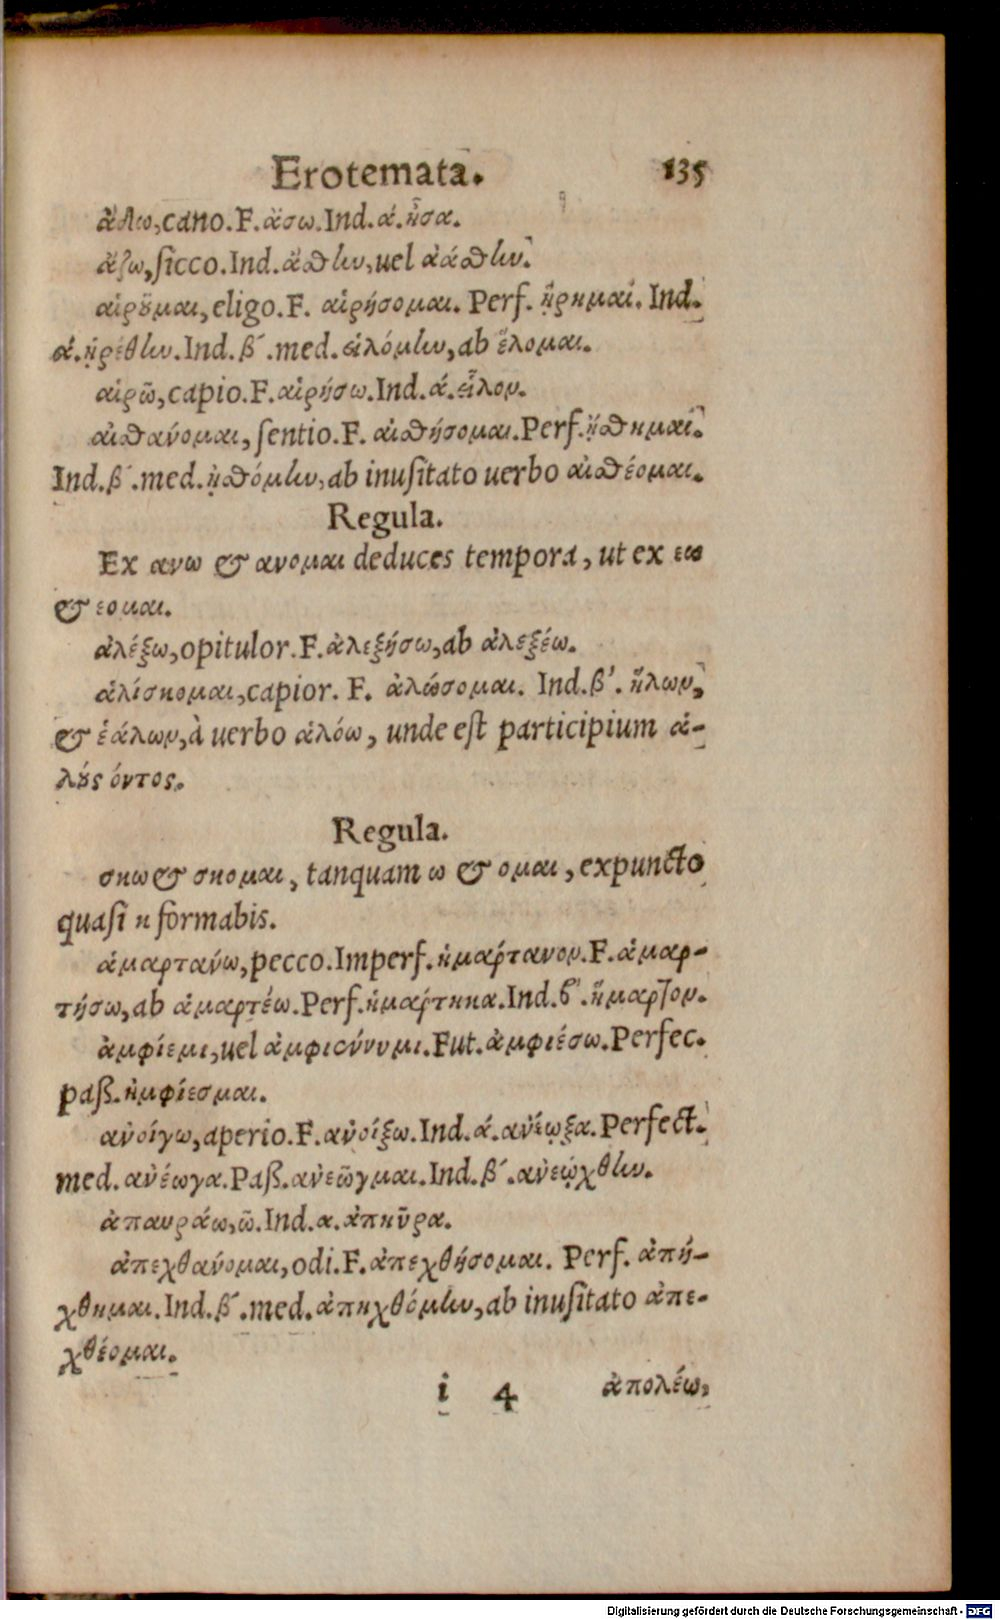 Erotemata. 135
ᾄδω, cano. F. ᾄσω. Ind. ά. ᾖσα.
ἄζω, sicco. Ind. ἄσθην, uel ἀάσθην.
αἱροῦμαι, eligo. F. αἱρήσομαι. Perf. ᾕρημαι. Ind.
ά. ᾑρέθην. Ind. β΄. med. εἱλόμην, ab ἕλομαι.
αἱρῶ, capio. F. αἱρήσω. Ind. ά. εἷλον.
αἰσθάνομαι, sentio. F. αἰσθήσομαι. Perf. ᾔσθημαι.
Ind. β΄. med. ᾐσθόμην, ab inusitato uerbo αἰσθέομαι.
Regula.
Ex ανω & ανομαι deduces tempora, ut ex εω
& εομαι.
ἀλέξω, opitulor. F. ἀλεξήσω, ab ἀλεξέω.
ἁλίσκομαι, capior. F. ἁλώσομαι. Ind. β΄. ἥλων,
& ἑάλων, à uerbo ἁλόω, unde est participium ἁ-
λοὺς όντος.
Regula.
σκω & σκομαι, tanquam ω & ομαι, expuncto
quasi κ formabis.
ἁμαρτανώ, pecco. Imperf. ἡμαρτανον. F. ἁμαρ-
τήσω, ab ἁμαρτέω. Perf. ἡμαρτηκα. Ind. β΄. ἥμαρτον.
ἀμφίεμι, uel ἀμφιεννυμι. Fut. ἀμφιέσω. Perfec.
paß. ἠμφίεσμαι.
ανοίγω, aperio. F. ανοίξω. Ind. ά. ανέῳξα. Perfect.
med. ανέωγα. Paß. ανεῶγμαι. Ind. β΄. ανεῴχθην.
ἀπαυράω, ῶ. Ind. α. ἀπηῦρα.
ἀπεχθανομαι, odi. F. ἀπεχθήσομαι. Perf. ἀπή-
χθημαι. Ind. β΄. med. ἀπηχθόμην, ab inusitato ἀπε-
χθέομαι.
i 4 ἀπολέω,
Digitalisierung gefördert durch die Deutsche Forschungsgemeinschaft - DFG